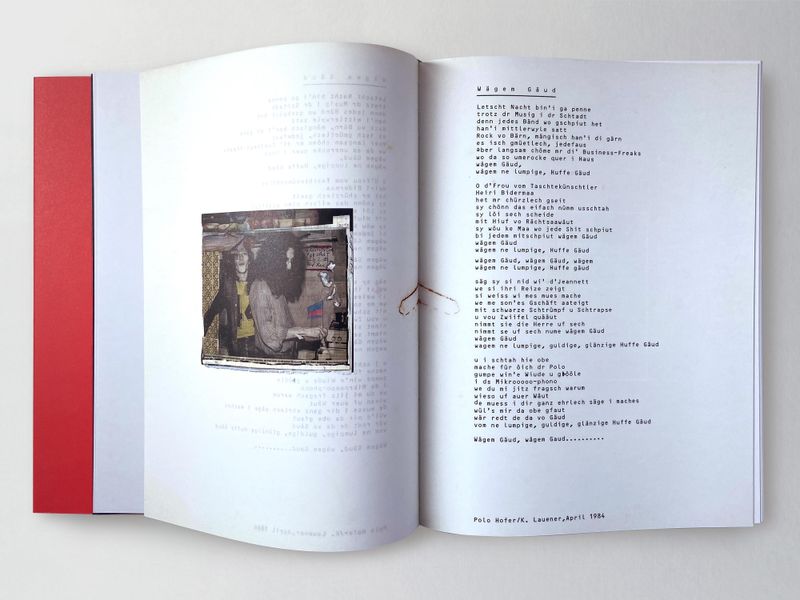 Wägem Gäud
Letscht Nacht bin'i ga penne
trotz dr Musig i dr Schtadt
denn jedes Bänd wo gschpiut het
han'i mittlerwyle satt
Rock vo Bärn, mängisch han'i di gärn
es isch gmüetlech, jedefaus
aber langsam chöme mr di' Business-Freaks
wo da so umerocke quer i Haus
wägem Gäud,
wägem ne lumpige, Huffe Gäud
O d'Frou vom Taschtekünschtler
Heiri Bidermaa
het mr chürzlech gseit
sy chönn das eifach nümm usschtah
sy löi sech scheide
mit Hiuf vo Rächtsaawäut
sy wöu ke Maa wo jede Shit schpiut
bi jedem mitschpiut wägem Gäud
wägem Gäud
wägem ne lumpige, Huffe Gäud
wägem Gäud, wägem Gäud, wägem
wägem ne lumpige, huffe Gäud
säg sy si nid wi' d'Jeannett
we si ihri Reize zeigt
si weiss wi mes mues mache
we me son'es Gschäft aateigt
mit schwarze Schtrümpf u Schtrapse
u vou Zwiifel quääut
nimmt sie die Herre uf sech
nimmt se uf sech nume wägem Gäud
wägem Gäud
wägem ne lumpige, guldige, glänzige Huffe Gäud
u i schtah hie obe
mache für öich dr Polo
gumpe win'e Wiude u gööle
i ds Mikrooooo-phono
we du mi jitz fragsch warum
wieso uf auer Wäut
de muess i dir ganz ehrlech säge i maches
wül's mir da obe gfaut
wär redt de da vo Gäud
vom ne lumpige, guldige, glänzige Huffe Gäud
Wägem Gäud, wägem Gaud..........
Polo Hofer/K. Lauener,April 1984